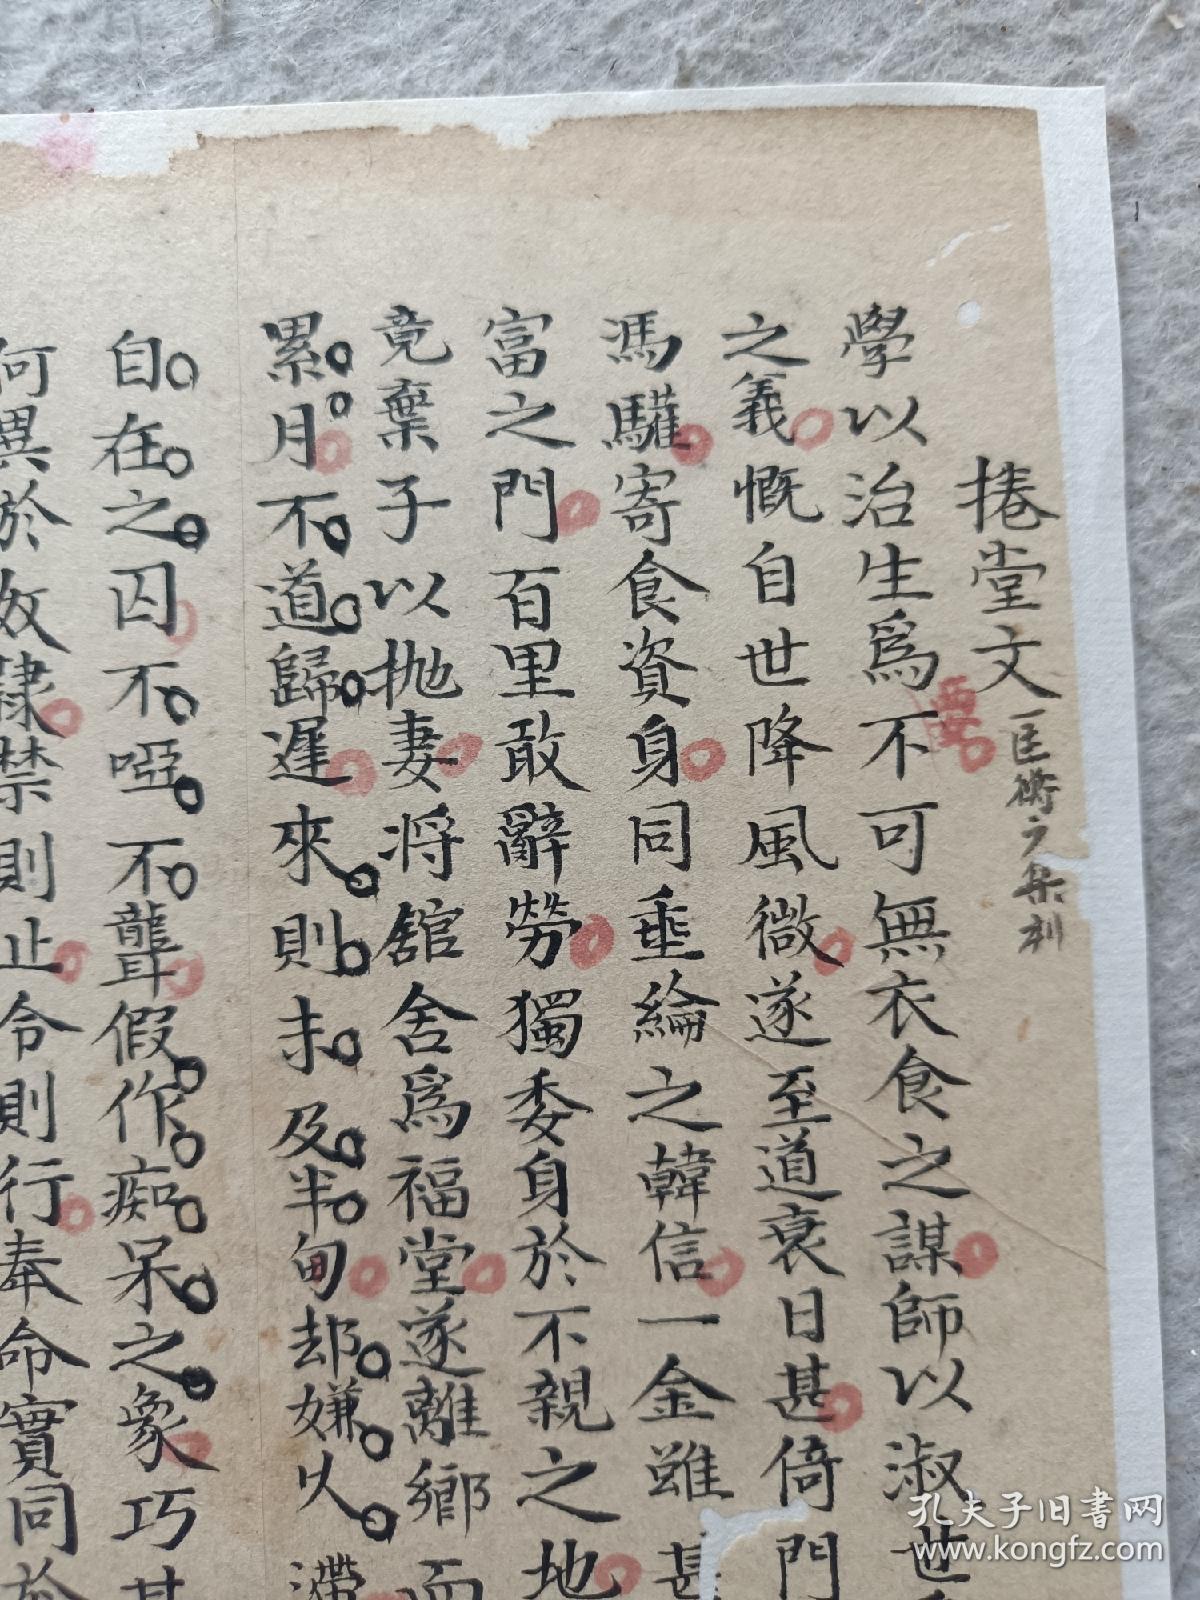 捲堂文
匡衡之
要
學以治生爲不可無衣食之謀師以淑世
之義慨自世降風微遂至道衰日甚倚門
馮驩寄食資身同垂綸之韓信一金雖甚
富之門百里敢辭勞獨委身於不親之地
竟棄子以抛妻將舘舍爲福堂遂離鄉而
累月不道歸遲來則未及半甸却嫌久滯
自在之囚不啞不聾假作痴呆之象巧甚
何異於奴隸禁則止令則行奉命實同於
孔夫子旧书网
www.kongfz.com